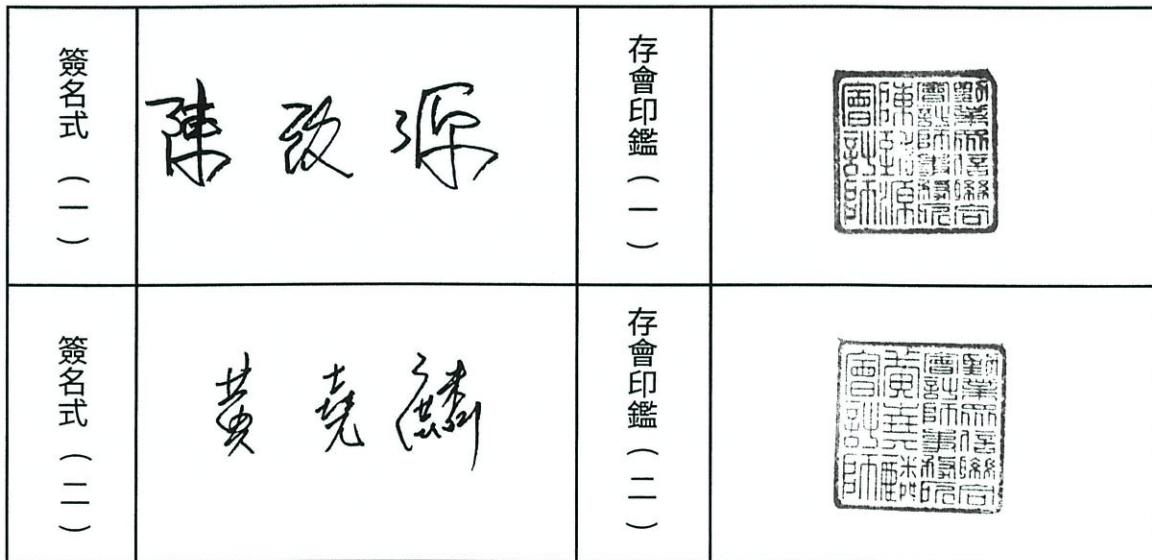 簽名式（一）
陳致源
存會印鑑（一）
勤業眾信聯合
會計師事務所
陳致源
會計師
簽名式（二）
黃堯麟
存會印鑑（二）
勤業眾信聯合
會計師事務所
黃堯麟
會計師